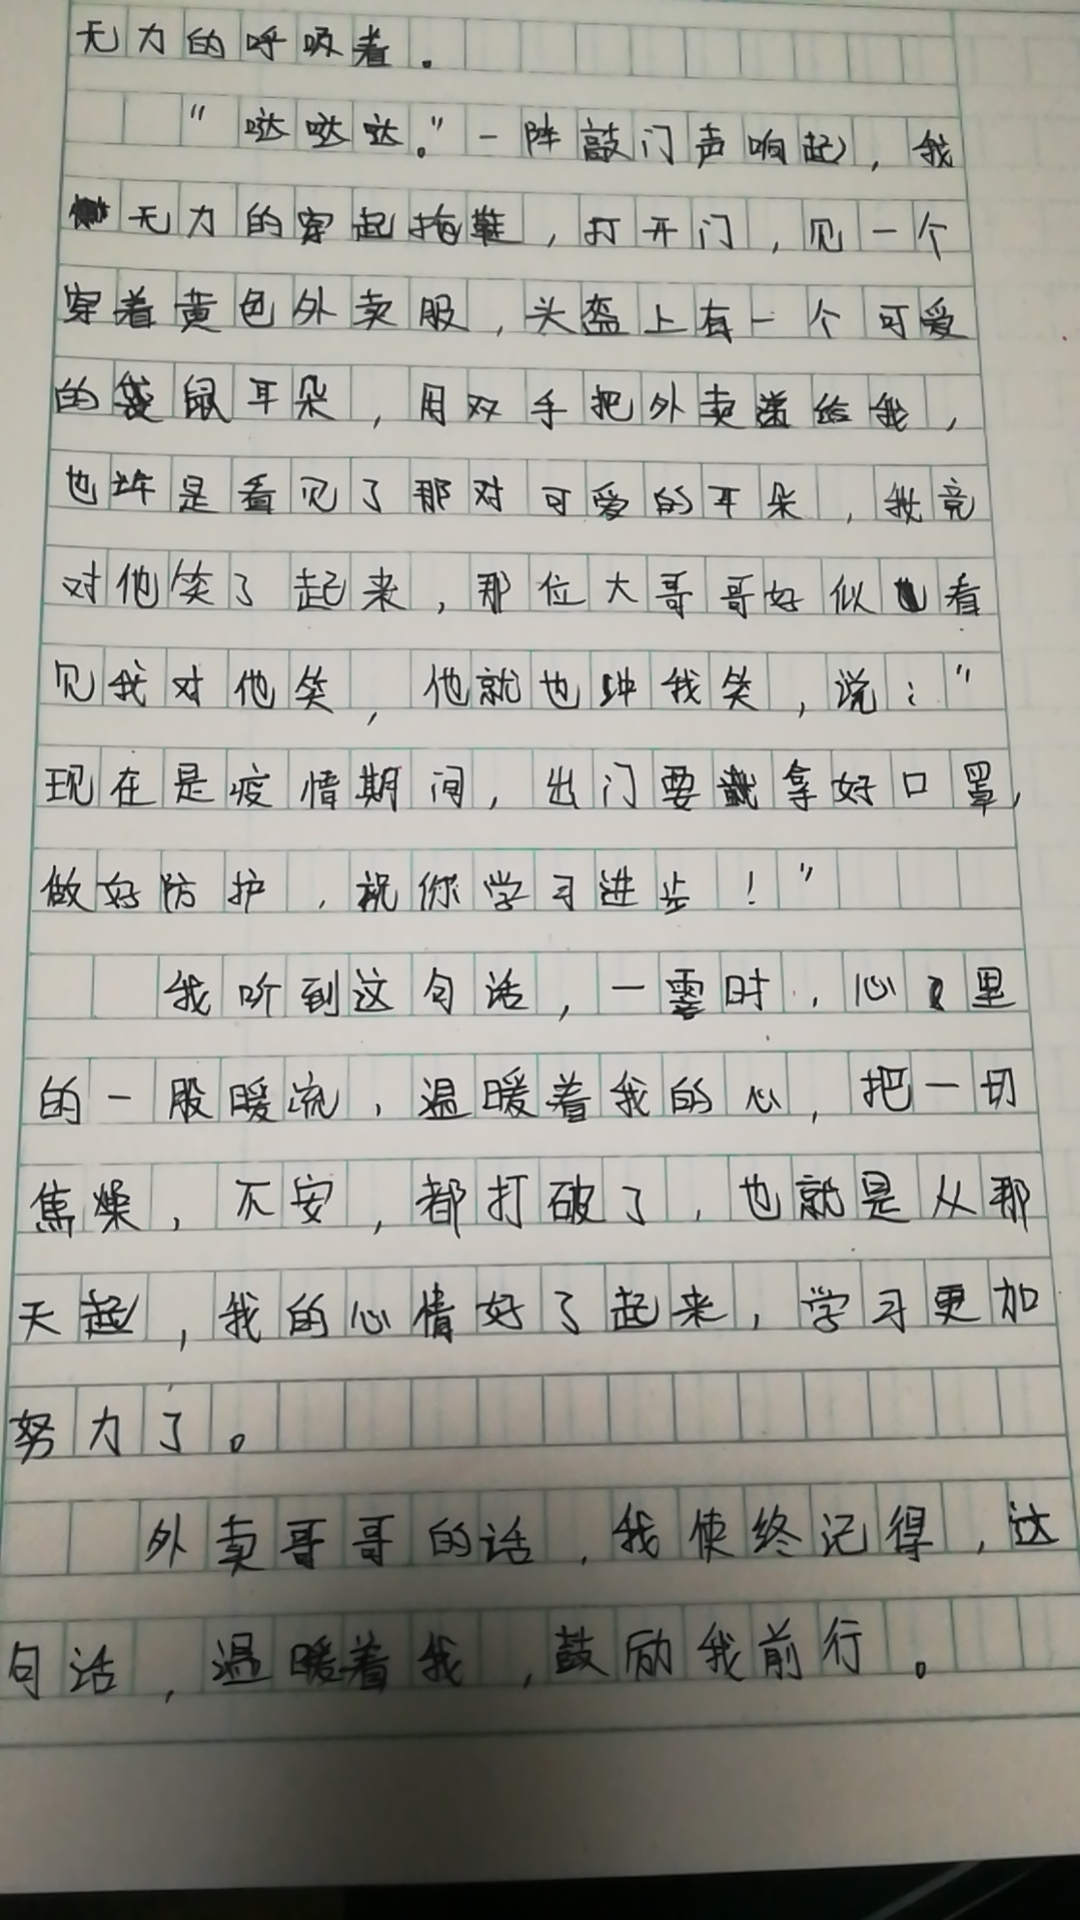 无力的呼吸着。
“哒哒哒。”一阵敲门声响起，我
无力的穿起拖鞋，打开门，见一个
穿着黄色外卖服，头盔上有一个可爱
的袋鼠耳朵，用双手把外卖递给我，
也许是看见了那对可爱的耳朵，我竟
对他笑了起来，那位大哥哥好似看
见我对他笑，他就也冲我笑，说：“
现在是疫情期间，出门要戴拿好口罩，
做好防护，祝你学习进步！”
我听到这句话，一霎时，心里
的一股暖流，温暖着我的心，把一切
焦燥，不安，都打破了，也就是从那
天起，我的心情好了起来，学习更加
努力了。
外卖哥哥的话，我使终记得，这
句话，温暖着我，鼓励我前行。